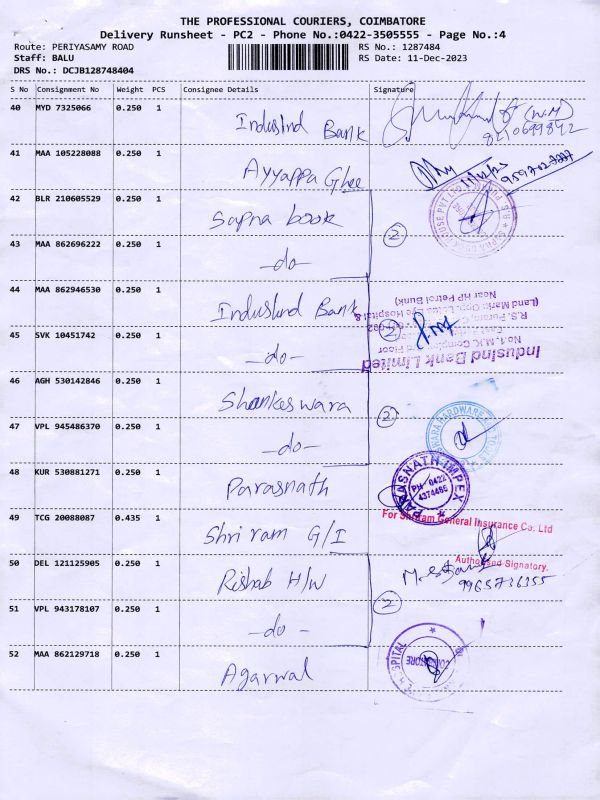 THE PROFESSIONAL COURIERS, COIMBATORE
Delivery Runsheet - PC2 - Phone No.:0422-3505555 - Page No.:4
Route: PERIYASAMY ROAD
RS No.: 1287484
Staff: BALU
RS Date: 11-Dec-2023
DRS No.: DCJB128748404
S No Consignment No Weight PCS Consignee Details Signature
40 MYD 7325066 0.250 1
IndusInd Bank
(W.M)
8210699842
41 MAA 105228088 0.250 1
Ayyappa Ghee
11/12/23
9597027227
42 BLR 210605529 0.250 1
Sapna book
2
43 MAA 862696222 0.250 1
-do-
44 MAA 862946530 0.250 1
IndusInd Bank
2
45 SVK 10451742 0.250 1
-do-
IndusInd Bank Limited
No1, MJC Complex
R.S. Puram
(Land Mark: Opp. Lotus Eye Hospital &
Near HP Petrol Bunk)
46 AGH 530142846 0.250 1
Shankeswara
2
47 VPL 945486370 0.250 1
-do-
48 KUR 530881271 0.250 1
Parasnath
PARASNATH IMPEX
PH - 0422
4374485
49 TCG 20088087 0.435 1
Shri ram G/I
For Shriram General Insurance Co. Ltd
Authorised Signatory.
50 DEL 121125905 0.250 1
Rishab H/W
9965736355
51 VPL 943178107 0.250 1
-do-
2
52 MAA 862129718 0.250 1
Agarwal
HOSPITAL
COIMBATORE